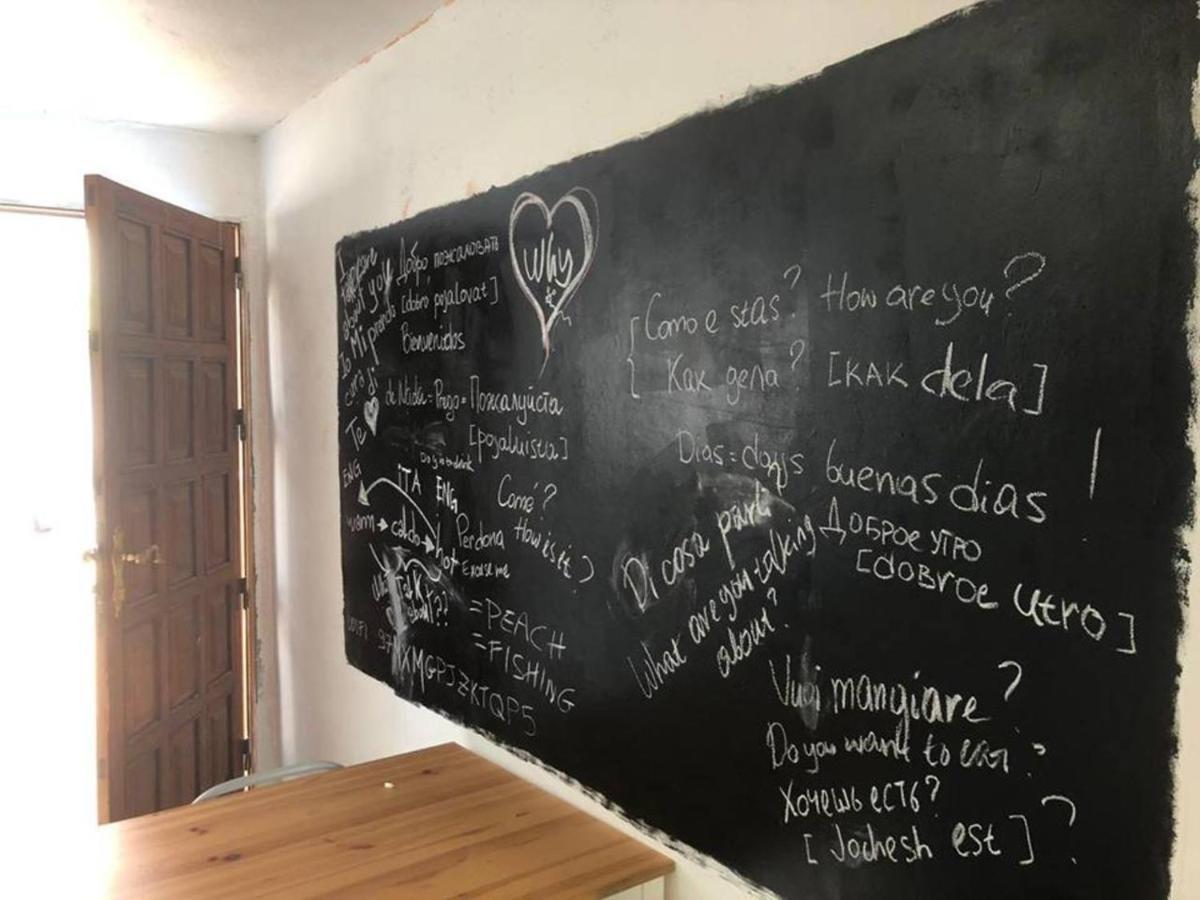 I
about you
Io Mi prendo
cura di
Te
Добро пожаловать
[dobro pojalovat]
Bienvenidos
Why
de Nada = Prego = Пожалуйста
[pojaluista]
ENG
ITA ENG
warm → caldo → hot
Perdona
Excuse me
Comé?
How is it?
Talk
about??
=PEACH
=FISHING
XMGPJZKTQP5
Como e stas? How are you?
Как дела? [KAK dela]
Dias = days buenas dias
Доброе утро
[dobroe utro]
Di cosa parli
What are you talking
about?
Vuoi mangiare?
Do you want to eat?
Хочешь есть?
[Jochesh est]?